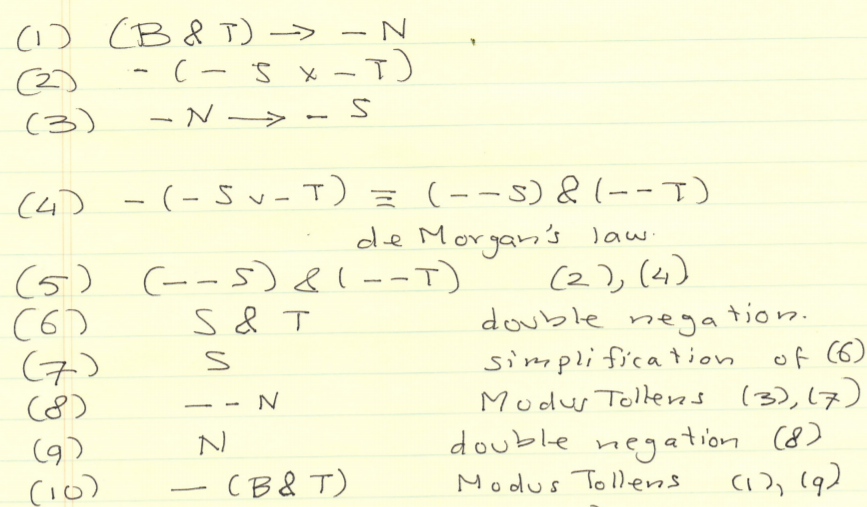 (1) (B & T) → - N
(2) - (- S x - T)
(3) - N → - S
(4) - (- S v - T) ≡ (- - S) & (- - T)
de Morgan's law.
(5) (- - S) & (- - T) (2), (4)
(6) S & T double negation.
(7) S simplification of (6)
(8) - - N Modus Tollens (3), (7)
(9) N double negation (8)
(10) - (B & T) Modus Tollens (1), (9)